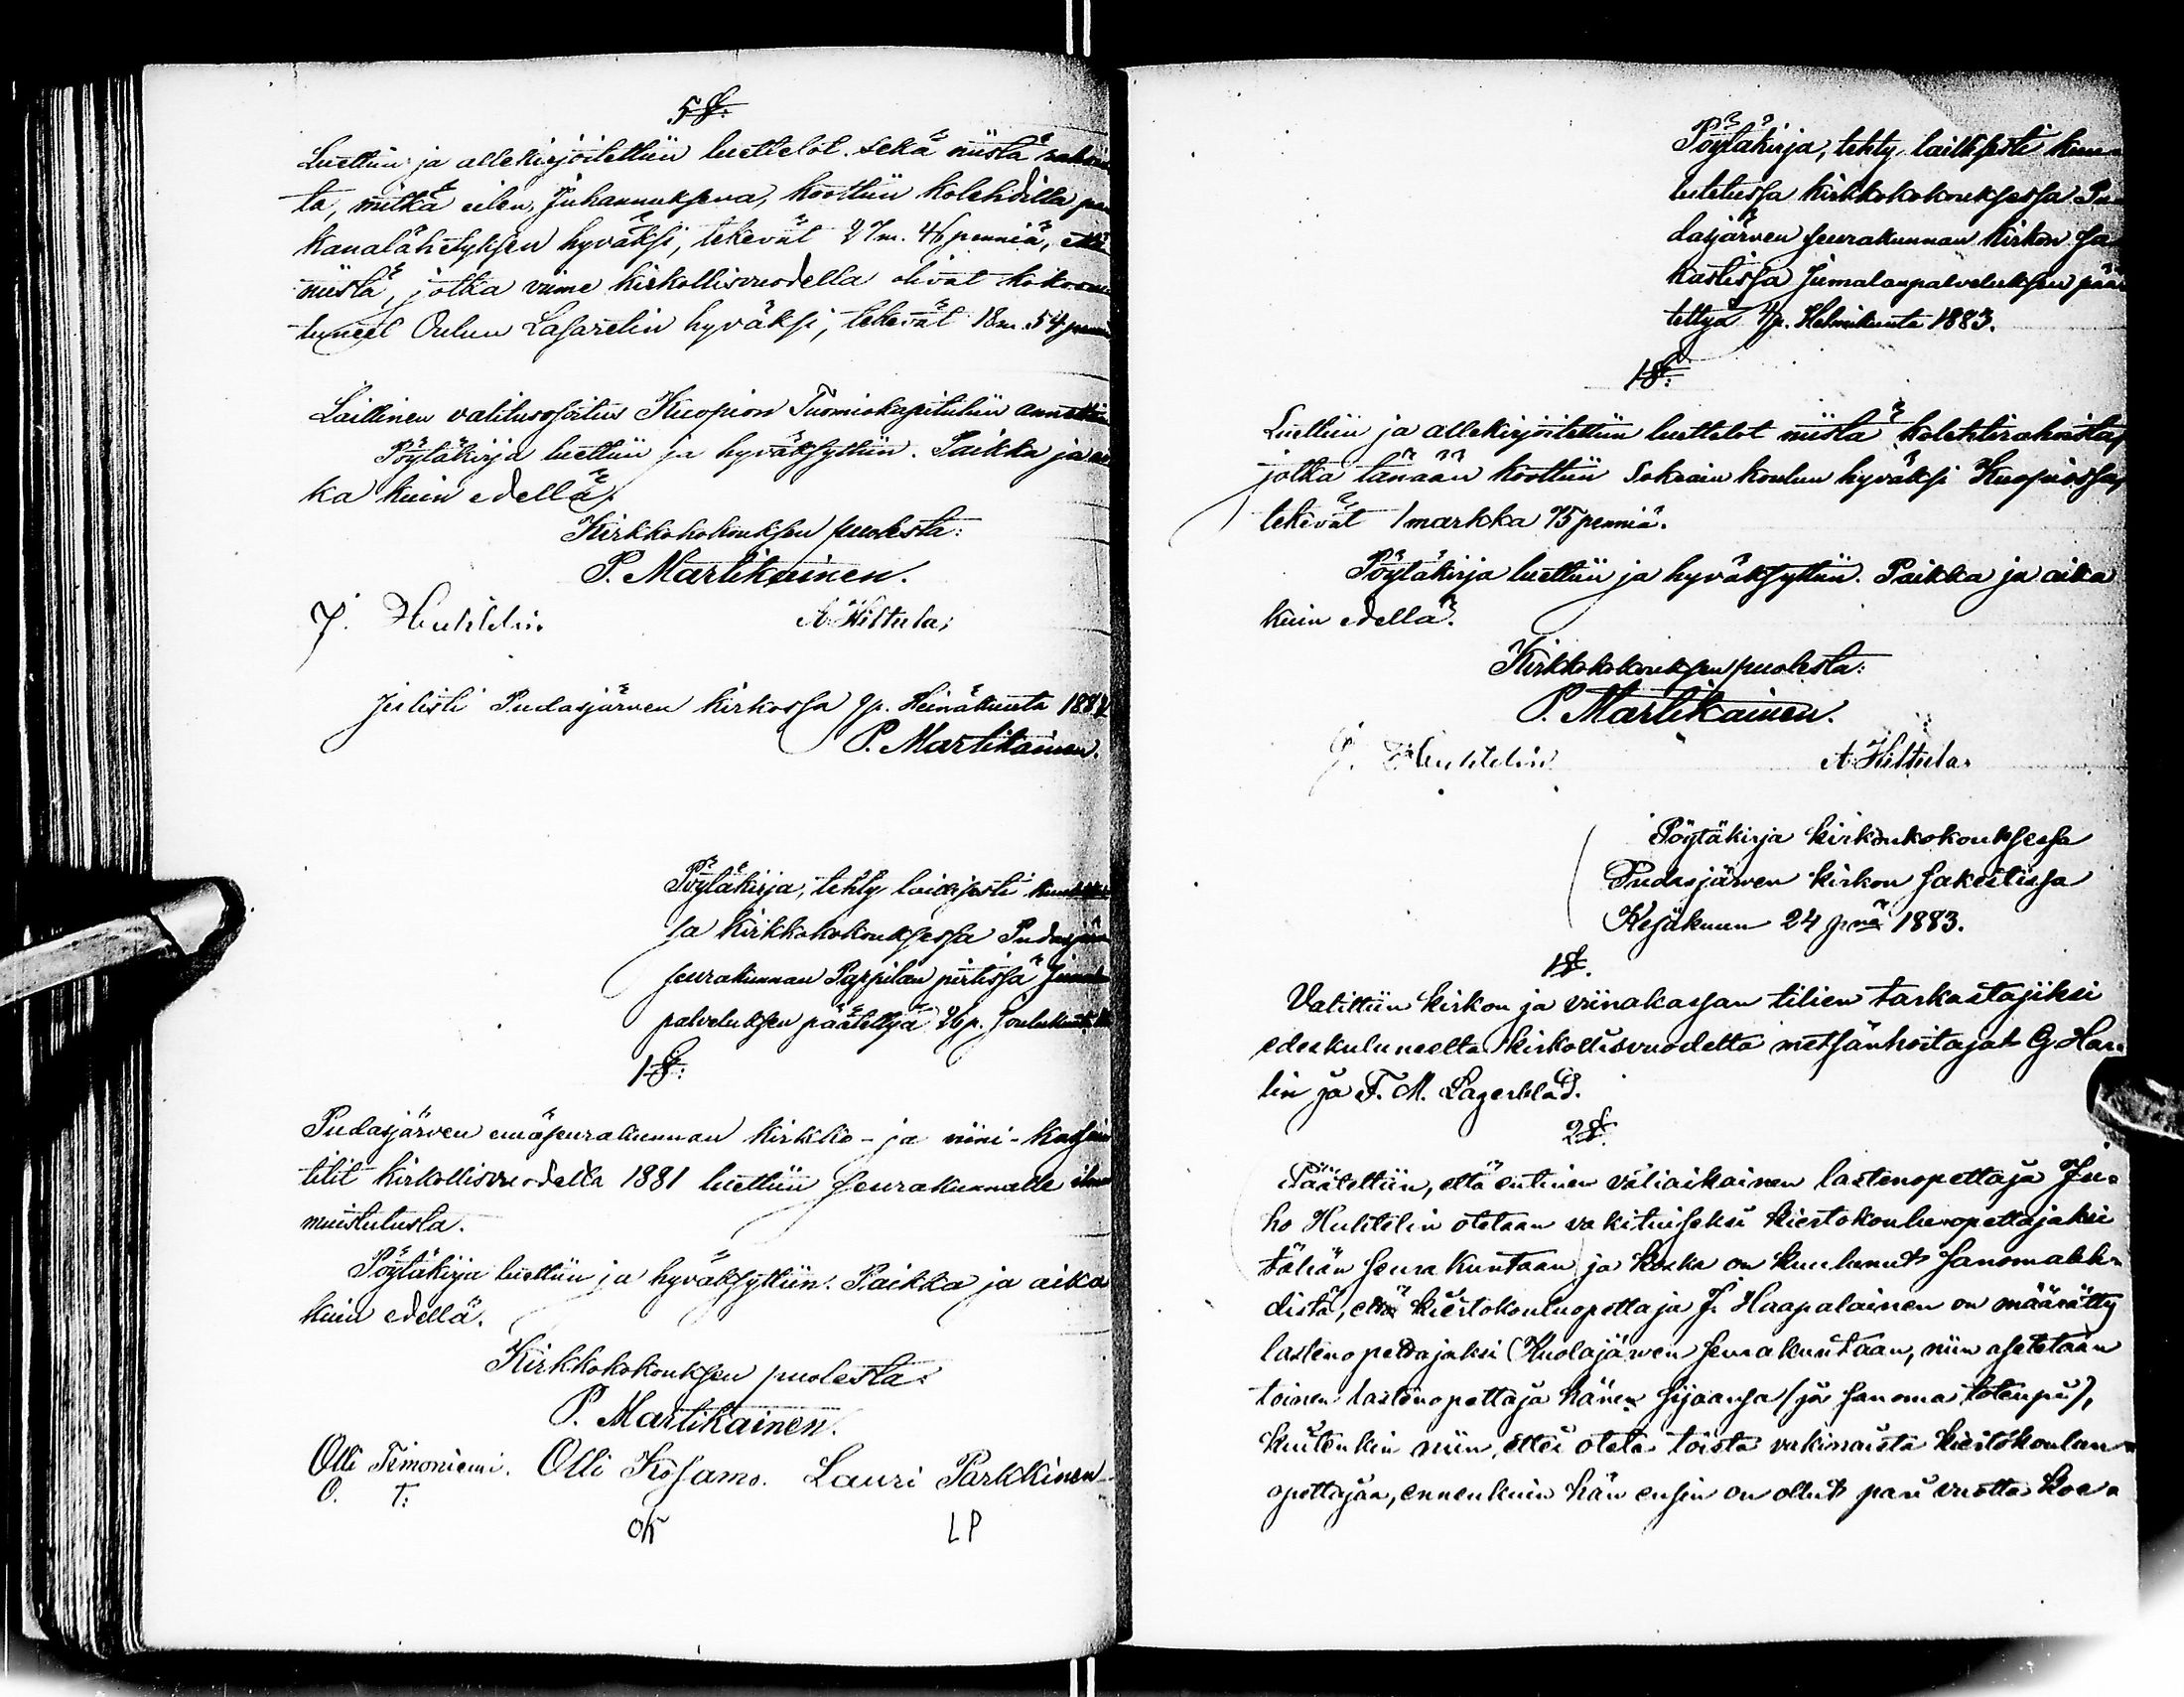 5 §:
Luettiin ja allekirjoitettiin luettelot sekä niistä
ta, mitkä eilen, Juhannuksena, koottiin kolehdilla pa
kanalähetyksen hyväksi, tekevät 27 m. 46 penniä, että
niistä, jotka viime kirkollisvuodella olivat kokoon
tuneet Oulun Lasaretin hyväksi, tekevät 18 m. 54 penni
Laillinen valitusosoitus Kuopion Tuomiokapituliin annettiin
Pöytäkirja luettiin ja hyväksyttiin. Paikka ja ai
ka kuin edellä.
Kirkkokokouksen puolesta:
P. Martikainen.
J. Huhtelin. A. Hiltula.
Julisti Pudasjärven kirkossa 9 p. Heinäkuuta 1882
P. Martikainen.
Pöytäkirja, tehty laillisesti
sa kirkkokokouksessa Pudasjär
seurakunnan Pappilan pirtissä Jumalan
palveluksen päätettyä 26 p. Joulukuuta
1 §:
Pudasjärven emäseurakunnan kirkko- ja viini-kassain
tilit kirkollisvuodella 1881 luettiin seurakunnalle ilman
muistutusta.
Pöytäkirja luettiin ja hyväksyttiin. Paikka ja aika
kuin edellä.
Kirkkokokouksen puolesta:
P. Martikainen.
Olli Timoniemi. Olli Kosamo. Lauri Parkkinen
O. T: OK LP
Pöytäkirja, tehty laillisesti kuu
lutetussa kirkkokokouksessa Pu
dasjärven seurakunnan kirkon sa
kastissa Jumalanpalveluksen pää
tettyä 4 p. Helmikuuta 1883.
1 §:
Luettiin ja allekirjoitettiin luettelot niistä kolehtirahoista,
jotka tänään koottiin Sokeain koulun hyväksi Kuopiossa,
tekevät 1 markka 75 penniä.
Pöytäkirja luettiin ja hyväksyttiin. Paikka ja aika
kuin edellä.
Kirkkokokouksen puolesta:
P. Martikainen.
J. Huhtelin A. Hiltula.
Pöytäkirja kirkonkokouksessa
Pudasjärwen kirkon sakeitissa
Kesäkuun 24 pnä 1883.
1 §.
Valittiin kirkon ja viinakassan tilien tarkastajiksi
edeskuluneelta kirkollisvuodelta metsänhoitajat G. Har-
lin ja F. M. Lagerblad.
2 §.
Päätettiin, että entinen väliaikainen lastenopettaja Ju-
ho Huhtelin otetaan vakituiseksi kiertokoulu-opettajaksi
tähän seurakuntaan ja koska on kuulunut sanomaleh-
distä, että kiertokouluopettaja J. Haapalainen on määrätty
lastenopettajaksi Kuolajärwen seurakuntaan, niin asetetaan
toinen lastenopettaja hänen sijaansa (jos sanoma totenpii),
kuitenkin niin, ettei oteta toista vakinaista kiertokoulun-
opettajaa, ennenkuin hän ensin on ollut pari vuotta koe-